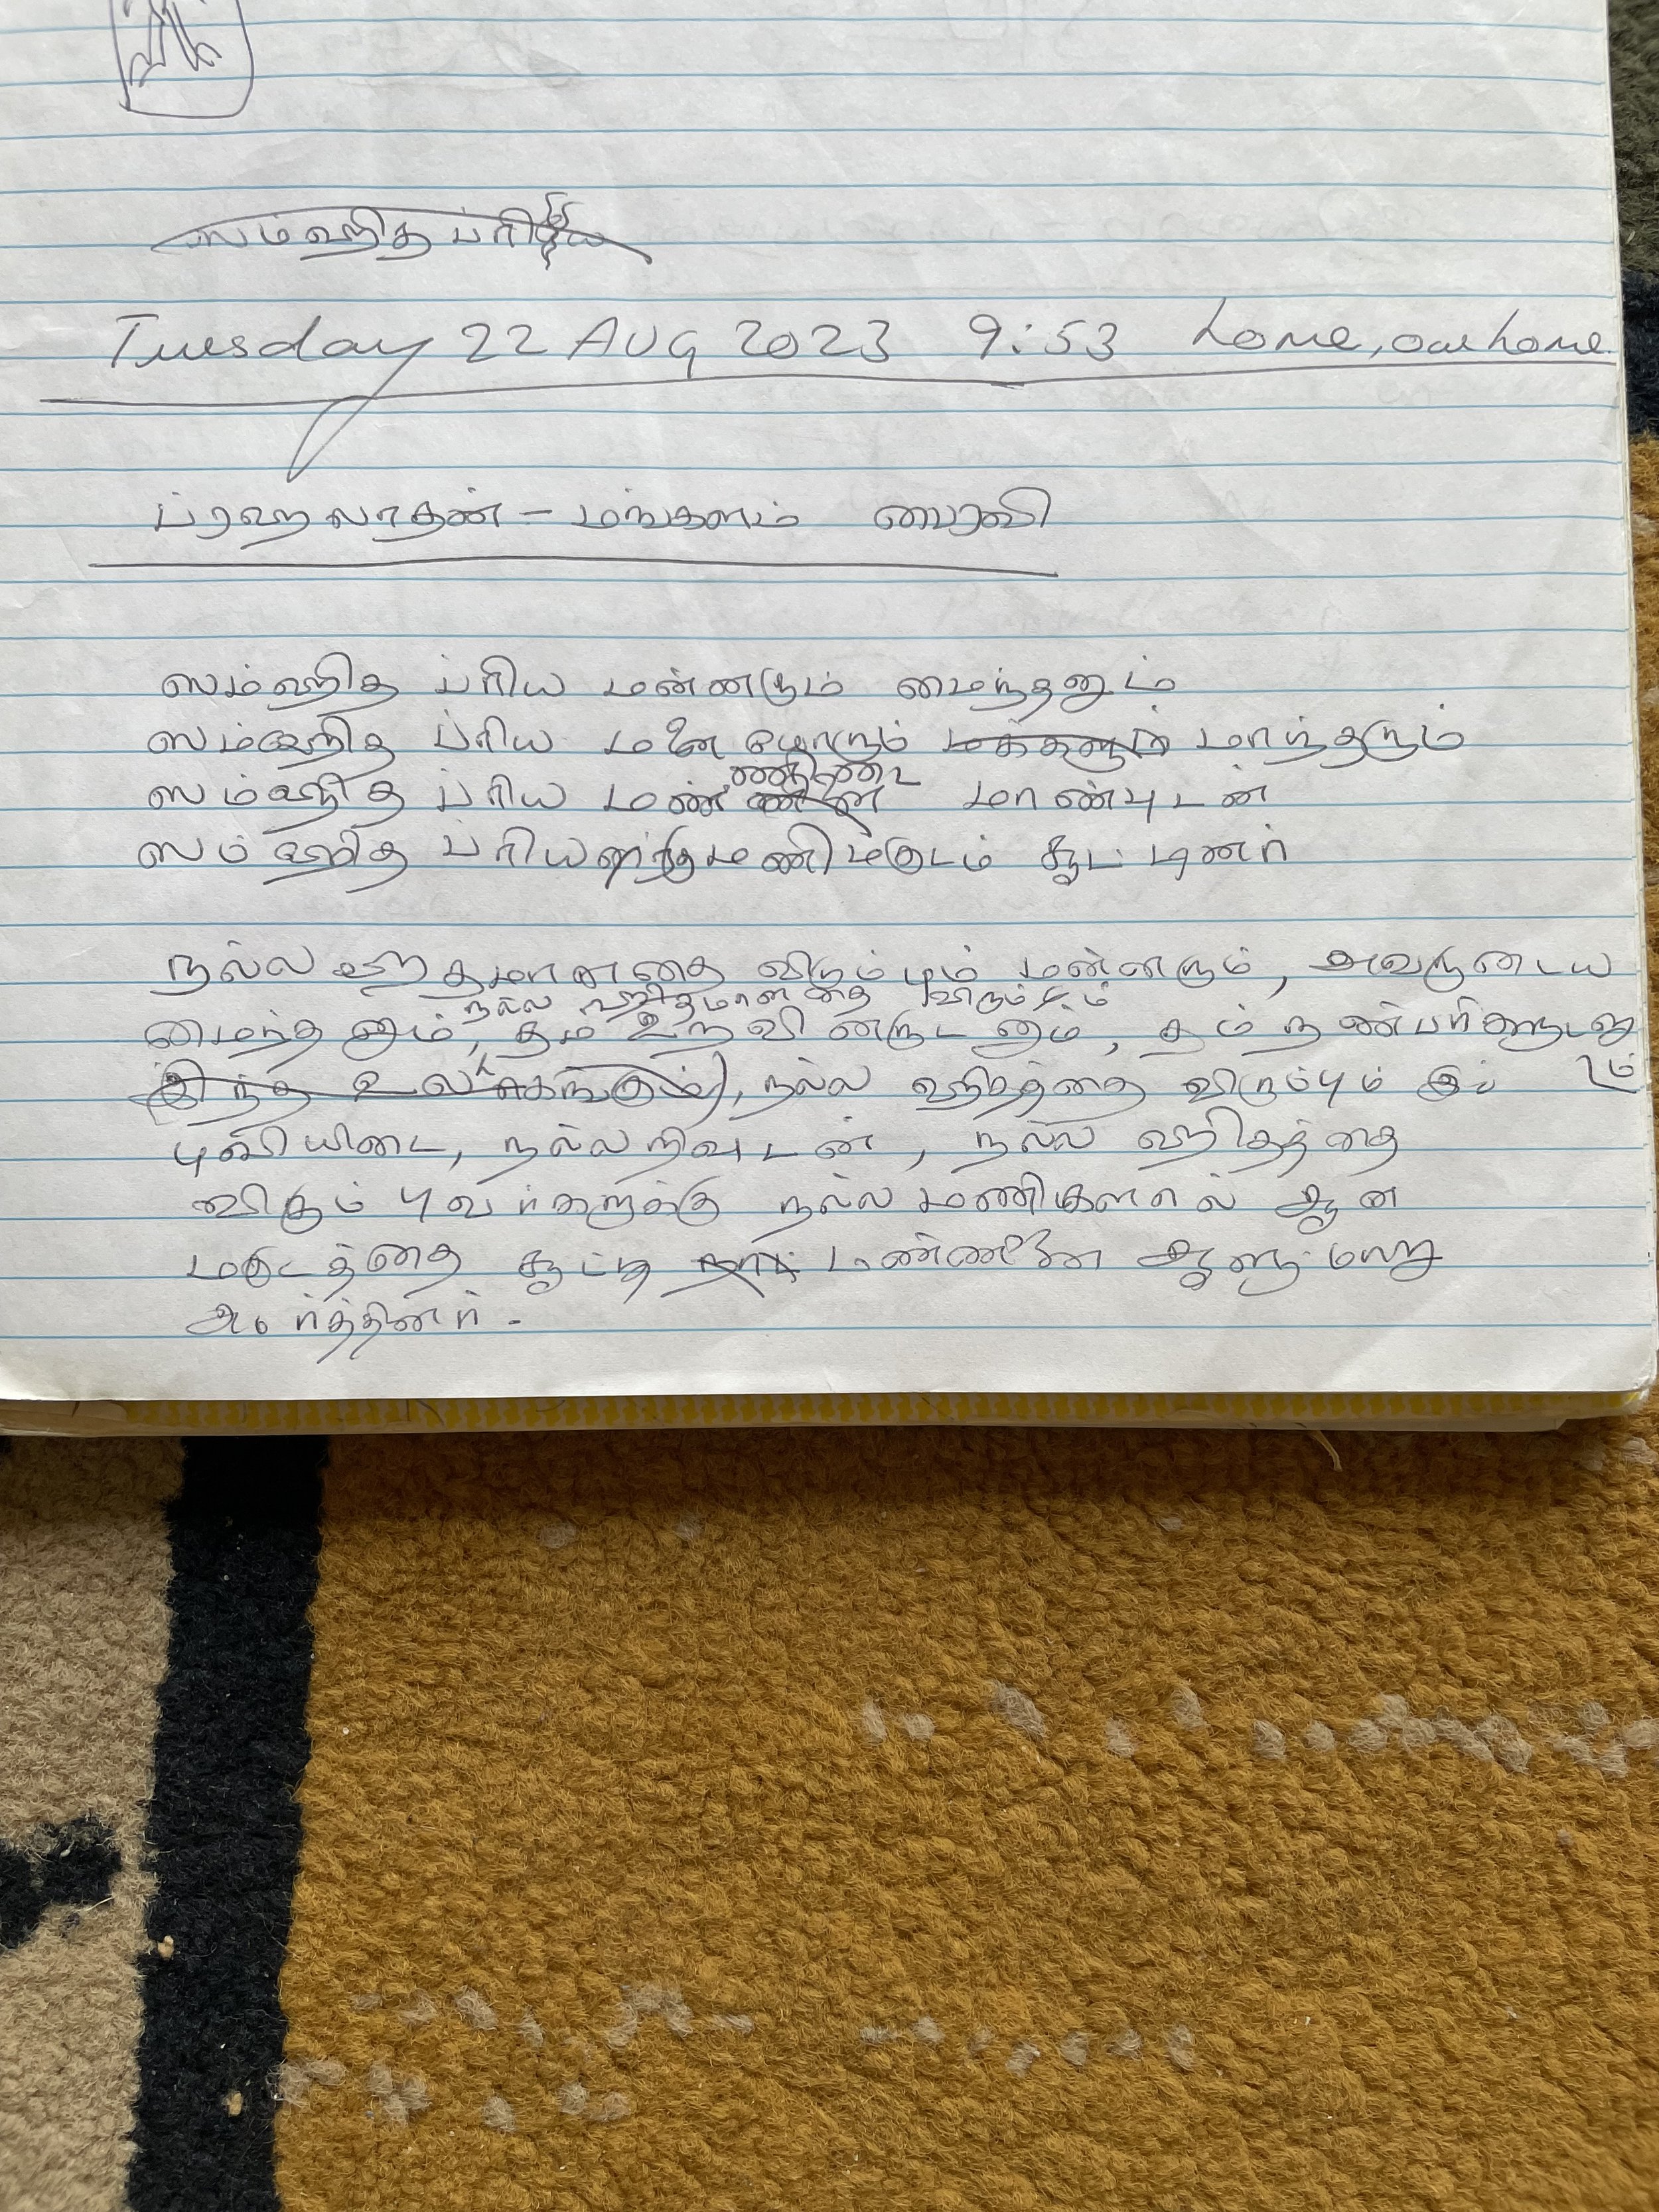 ஸம்ஹித ப்ரிய
Tuesday 22 AUG 2023 9:53 home, our home.
ப்ரஹலாதன் - மங்களம் பைரவி
ஸம்ஹித ப்ரிய மன்னரும் மைந்தனும்
ஸம்ஹித ப்ரிய மனையோரும் மக்களும் மாந்தரும்
ஸம்ஹித ப்ரிய மண்ணிடை மாண்புடன்
ஸம்ஹித ப்ரியனுக்கு மணிமகுடம் சூட்டினர்
நல்ல ஹிதமானதை விரும்பும் மன்னரும், அவருடைய
நல்ல ஹிதமானதை விரும்பும்
மைந்தனும், தம் உறவினருடனும், தம் நண்பர்களுடனு
இந்த உலகங்கும், நல்ல ஹிதத்தை விரும்பும் இப் ம்
புவியிடை, நல்லறிவுடன், நல்ல ஹிதத்தை
விரும்புவர்களுக்கு நல்ல மணிகளால் ஆன
மகுடத்தை சூட்டி மண்ணினை ஆளுமாறு
அமர்த்தினர்.